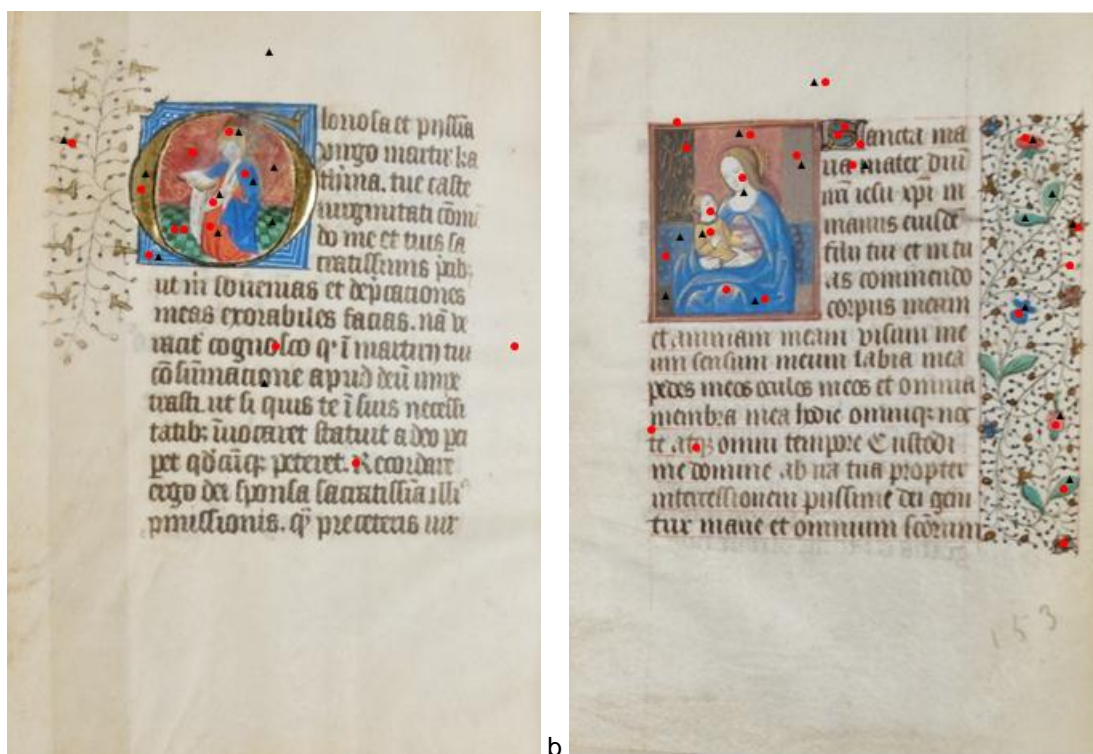 loriosa et pijssīa
uirgo martir ka
tue caste
uirginitati comē
do me et tuis sa
cratissimis
ut in souenias et dep̄cationes
meas exorabiles facias. nā ve
racit̄ cognosco q ī martirij tui
cōsūmacione apud deū impe
trasti. ut si quis te ī suis necessi
tatib; īuocaret statuit a deo
qd cūq; peteret. Recordare
ergo dei sponsa sacratissīa illi
pmissionis. q̄ preceteris uir
b
Sancta ma
ria mater dn̄i
nr̄i iesu xp̄i in
manus eiusdē
filij tui et in tu
as commendo
corpus meum
et animam meam visum me
um sensum meum labia mea
pedes meos oculos meos et omnia
membra mea hodie omniq; noc
te atq; omni tempre Custodi
me domine ab ira tua propter
intercessionem pijssime dei geni
trix marie et omnium scorum
153